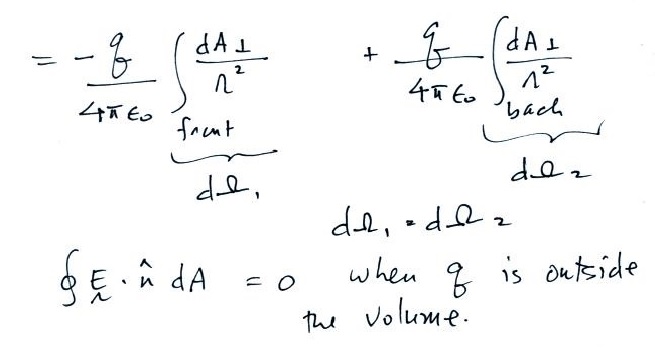 = - q/4πε₀ ∫front dA⊥/r² + q/4πε₀ ∫back dA⊥/r²
dΩ₁ dΩ₂
dΩ₁ = dΩ₂
∮ E · n̂ dA = 0 when q is outside
the volume.